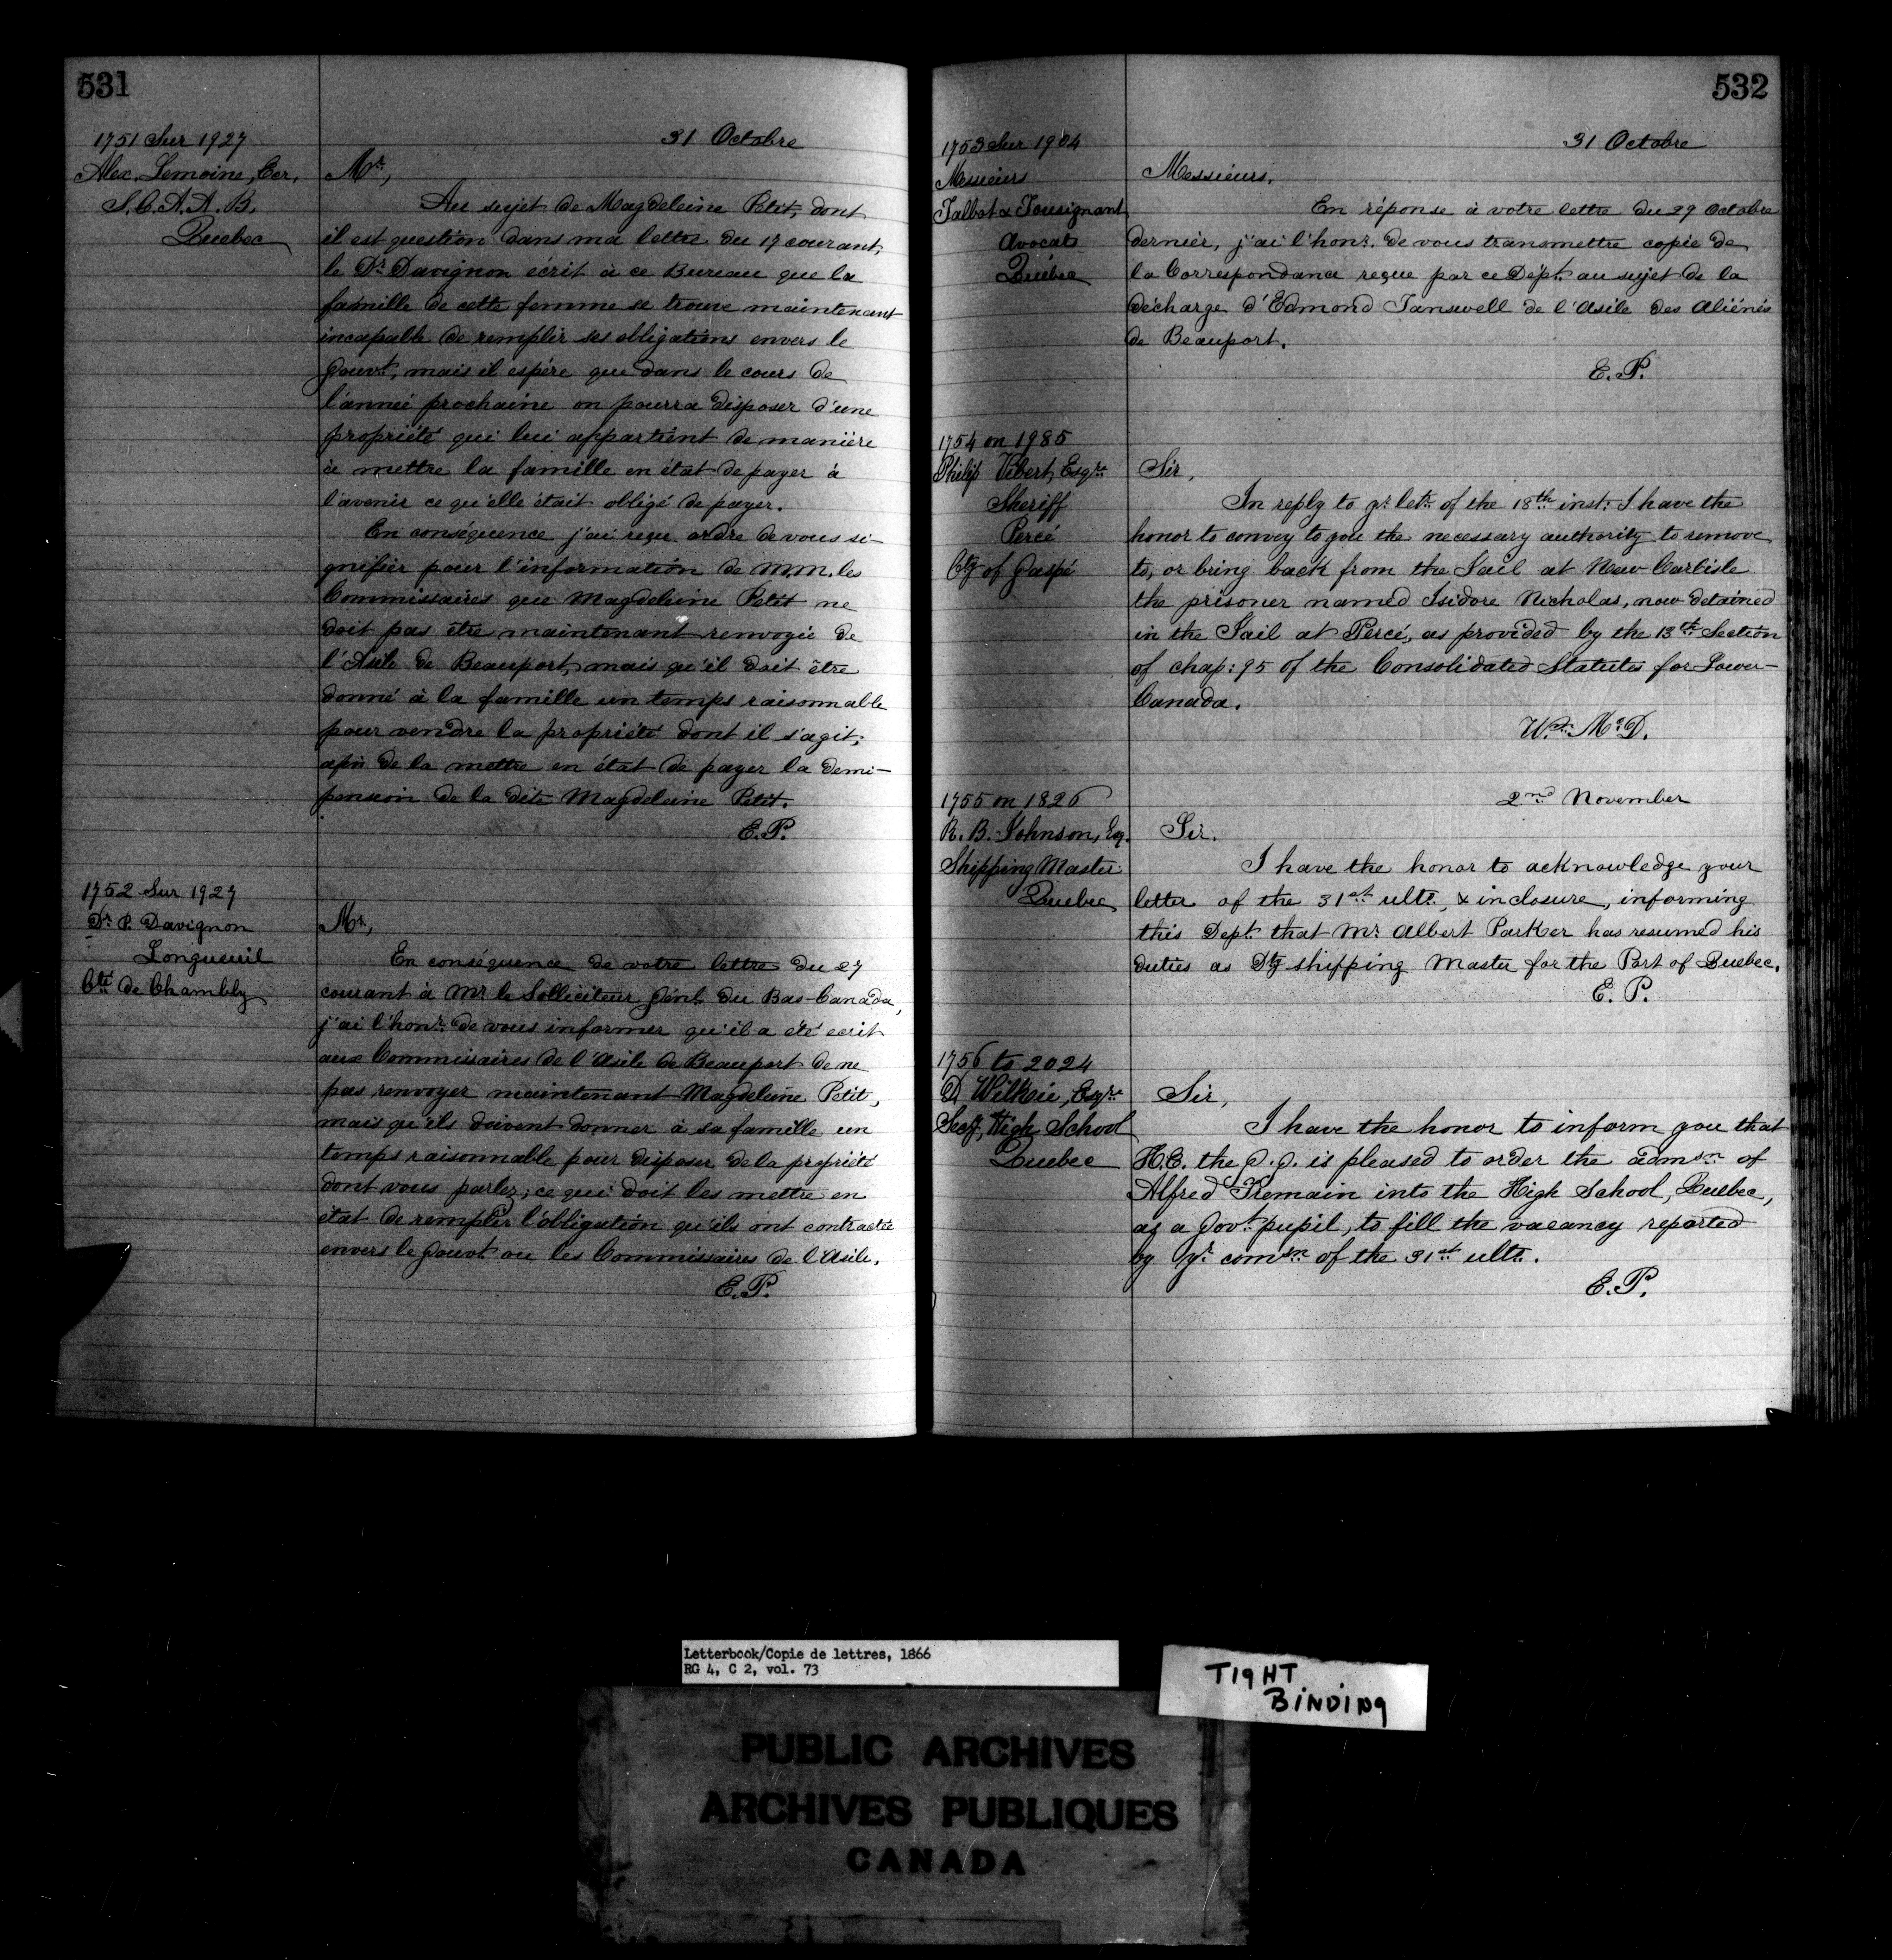 531
1751 Sur 1927
31 Octobre
Alex. Lemoine, Ecr.
S.C.A.A.B.
Quebec
Mr,
Au sujet de Magdeleine Petit, dont
il est question dans ma lettre du 17 courant,
le Dr. Davignon écrit à ce Bureau que la
famille de cette femme se trouve maintenant
incapable de remplir ses obligations envers le
Gouvt, mais il espère que dans le cours de
l'année prochaine on pourra disposer d'une
propriété qui lui appartient de manière
à mettre la famille en état de payer à
l'avenir ce qu'elle était obligé de payer.
En conséquence j'ai reçu ordre de vous si-
gnifier pour l'information de M.M. les
Commissaires que Magdeleine Petit ne
doit pas être maintenant renvoyée de
l'Asile de Beauport, mais qu'il doit être
donné à la famille un temps raisonnable
pour vendre la propriété dont il s'agit,
afin de la mettre en état de payer la demi-
pension de la dite Magdeleine Petit.
E.P.
1752 Sur 1927
Dr. P. Davignon
Longueuil
Cté de Chambly
Mr,
En conséquence de votre lettre du 27
courant à Mr le Solliciteur Génl. du Bas-Canada,
j'ai l'honr. de vous informer qu'il a été ecrit
aux Commissaires de l'Asile de Beauport de ne
pas renvoyer maintenant Magdeleine Petit,
mais qu'ils doivent donner à sa famille un
temps raisonnable pour disposer de la propriété
dont vous parlez; ce qui doit les mettre en
état de remplir l'obligation qu'ils ont contractée
envers le Gouvt ou les Commissaires de l'Asile.
E.P.
532
1753 Sur 1904
31 Octobre
Messieurs
Talbot & Tousignant
Avocats
Québec
Messieurs,
En réponse à votre lettre du 29 Octobre
dernier, j'ai l'honr. de vous transmettre copie de
la Correspondance reçue par ce Dépt. au sujet de la
décharge d'Edmond Tanswell de l'Asile des Aliénés
de Beauport.
E.P.
1754 on 1985
Philip Vibert, Esqre.
Sheriff
Percé
Cty of Gaspé
Sir,
In reply to yr. letr. of the 18th inst: I have the
honor to convey to you the necessary authority to remove
to, or bring back from the Jail at New Carlisle
the prisoner named Isidore Nicholas, now detained
in the Jail at Percé, as provided by the 13th Section
of chap: 95 of the Consolidated Statutes for Lower-
Canada.
Wm. McD.
2nd November
1755 on 1826
R. B. Johnson, Esq.
Shipping Master
Quebec
Sir.
I have the honor to acknowledge your
letter of the 31st ulto., & inclosure, informing
this Dept. that Mr. Albert Parker has resumed his
duties as Dty shipping Master for the Port of Quebec.
E. P.
1756 to 2024
D. Wilkie, Esqre.
Secy, High School
Quebec
Sir,
I have the honor to inform you that
H.E. the G.G. is pleased to order the admsn of
Alfred Tremain into the High School, Quebec,
as a Govt. pupil, to fill the vacancy reported
by yr. comsn of the 31st ulto.
E.P.
Letterbook/Copie de lettres, 1866
RG 4, C 2, vol. 73
TIGHT
BINDING
PUBLIC ARCHIVES
ARCHIVES PUBLIQUES
CANADA